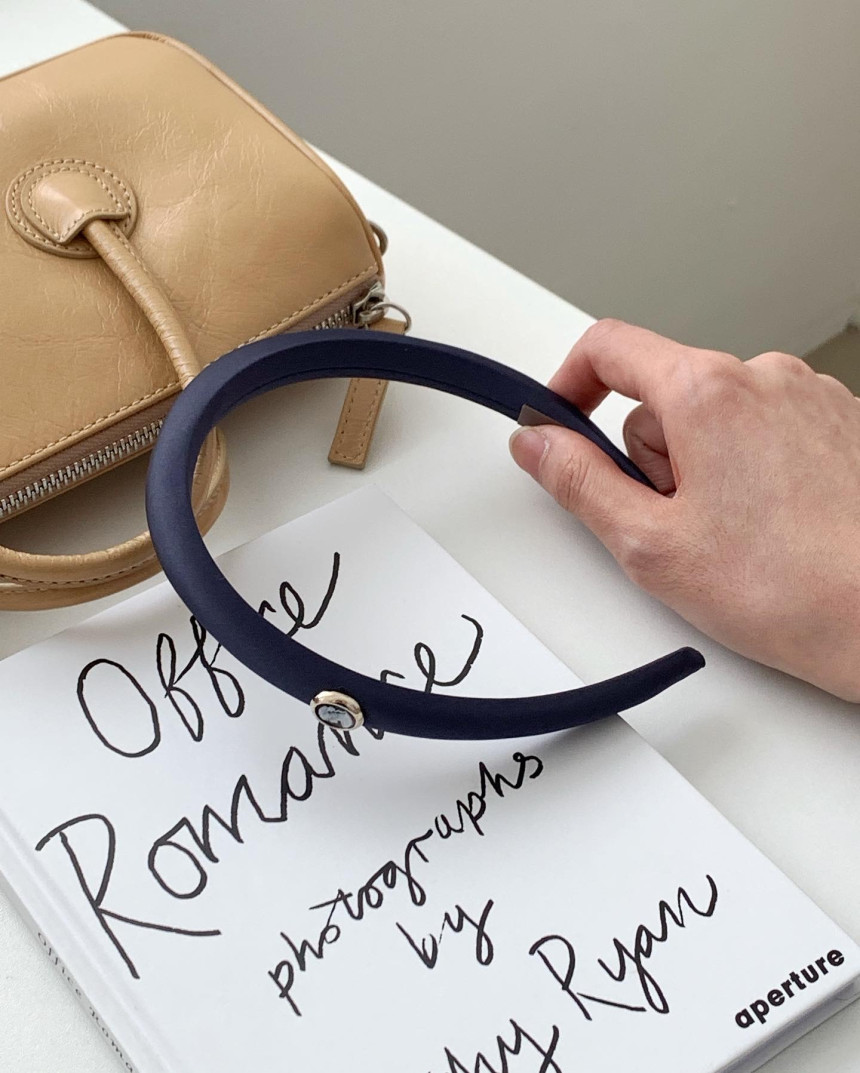 Office
Romance
photographs
by
Ryan
aperture
office